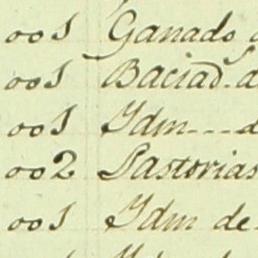 001 Ganado
001 Baciad. d
001 Idm---d
002 Pastorias
001 Idm de